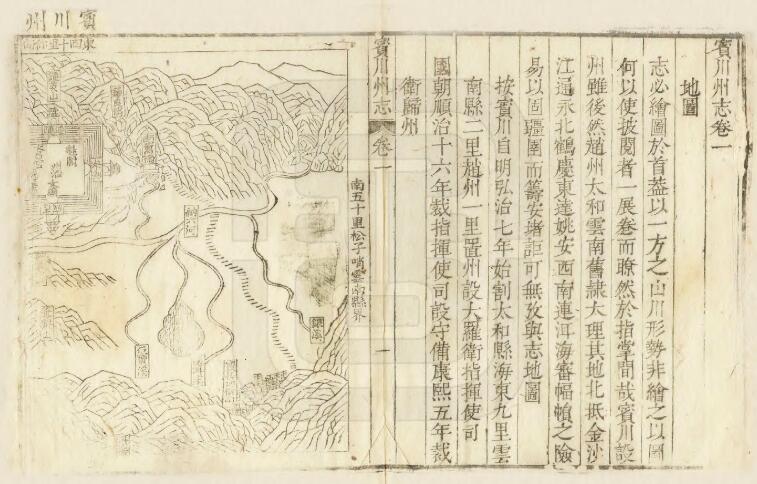 賓川州志卷一
地圖
志必繪圖於首蓋以一方之山川形勢非繪之以圖
何以使披閱者一展卷而瞭然於指掌間哉賓川設
州雖後然趙州太和雲南舊隸大理其地北抵金沙
江逼永北鶴慶東達姚安西南連洱海審幅幀之險
易以固疆圉而籌安堵詎可無攷與志地圖
按賓川自明弘治七年始割太和縣海東九里雲
南縣二里趙州一里置州設大羅衛指揮使司
國朝順治十六年裁指揮使司設守備康熙五年裁
衛歸州
賓川州志
卷一
一
南五十里松子哨雲南縣界
賓川州